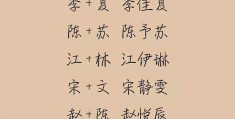 李+夏 李佳夏
陈+苏 陈予苏
江+林 江伊琳
宋+文 宋静雯
赵+陈 赵悦辰